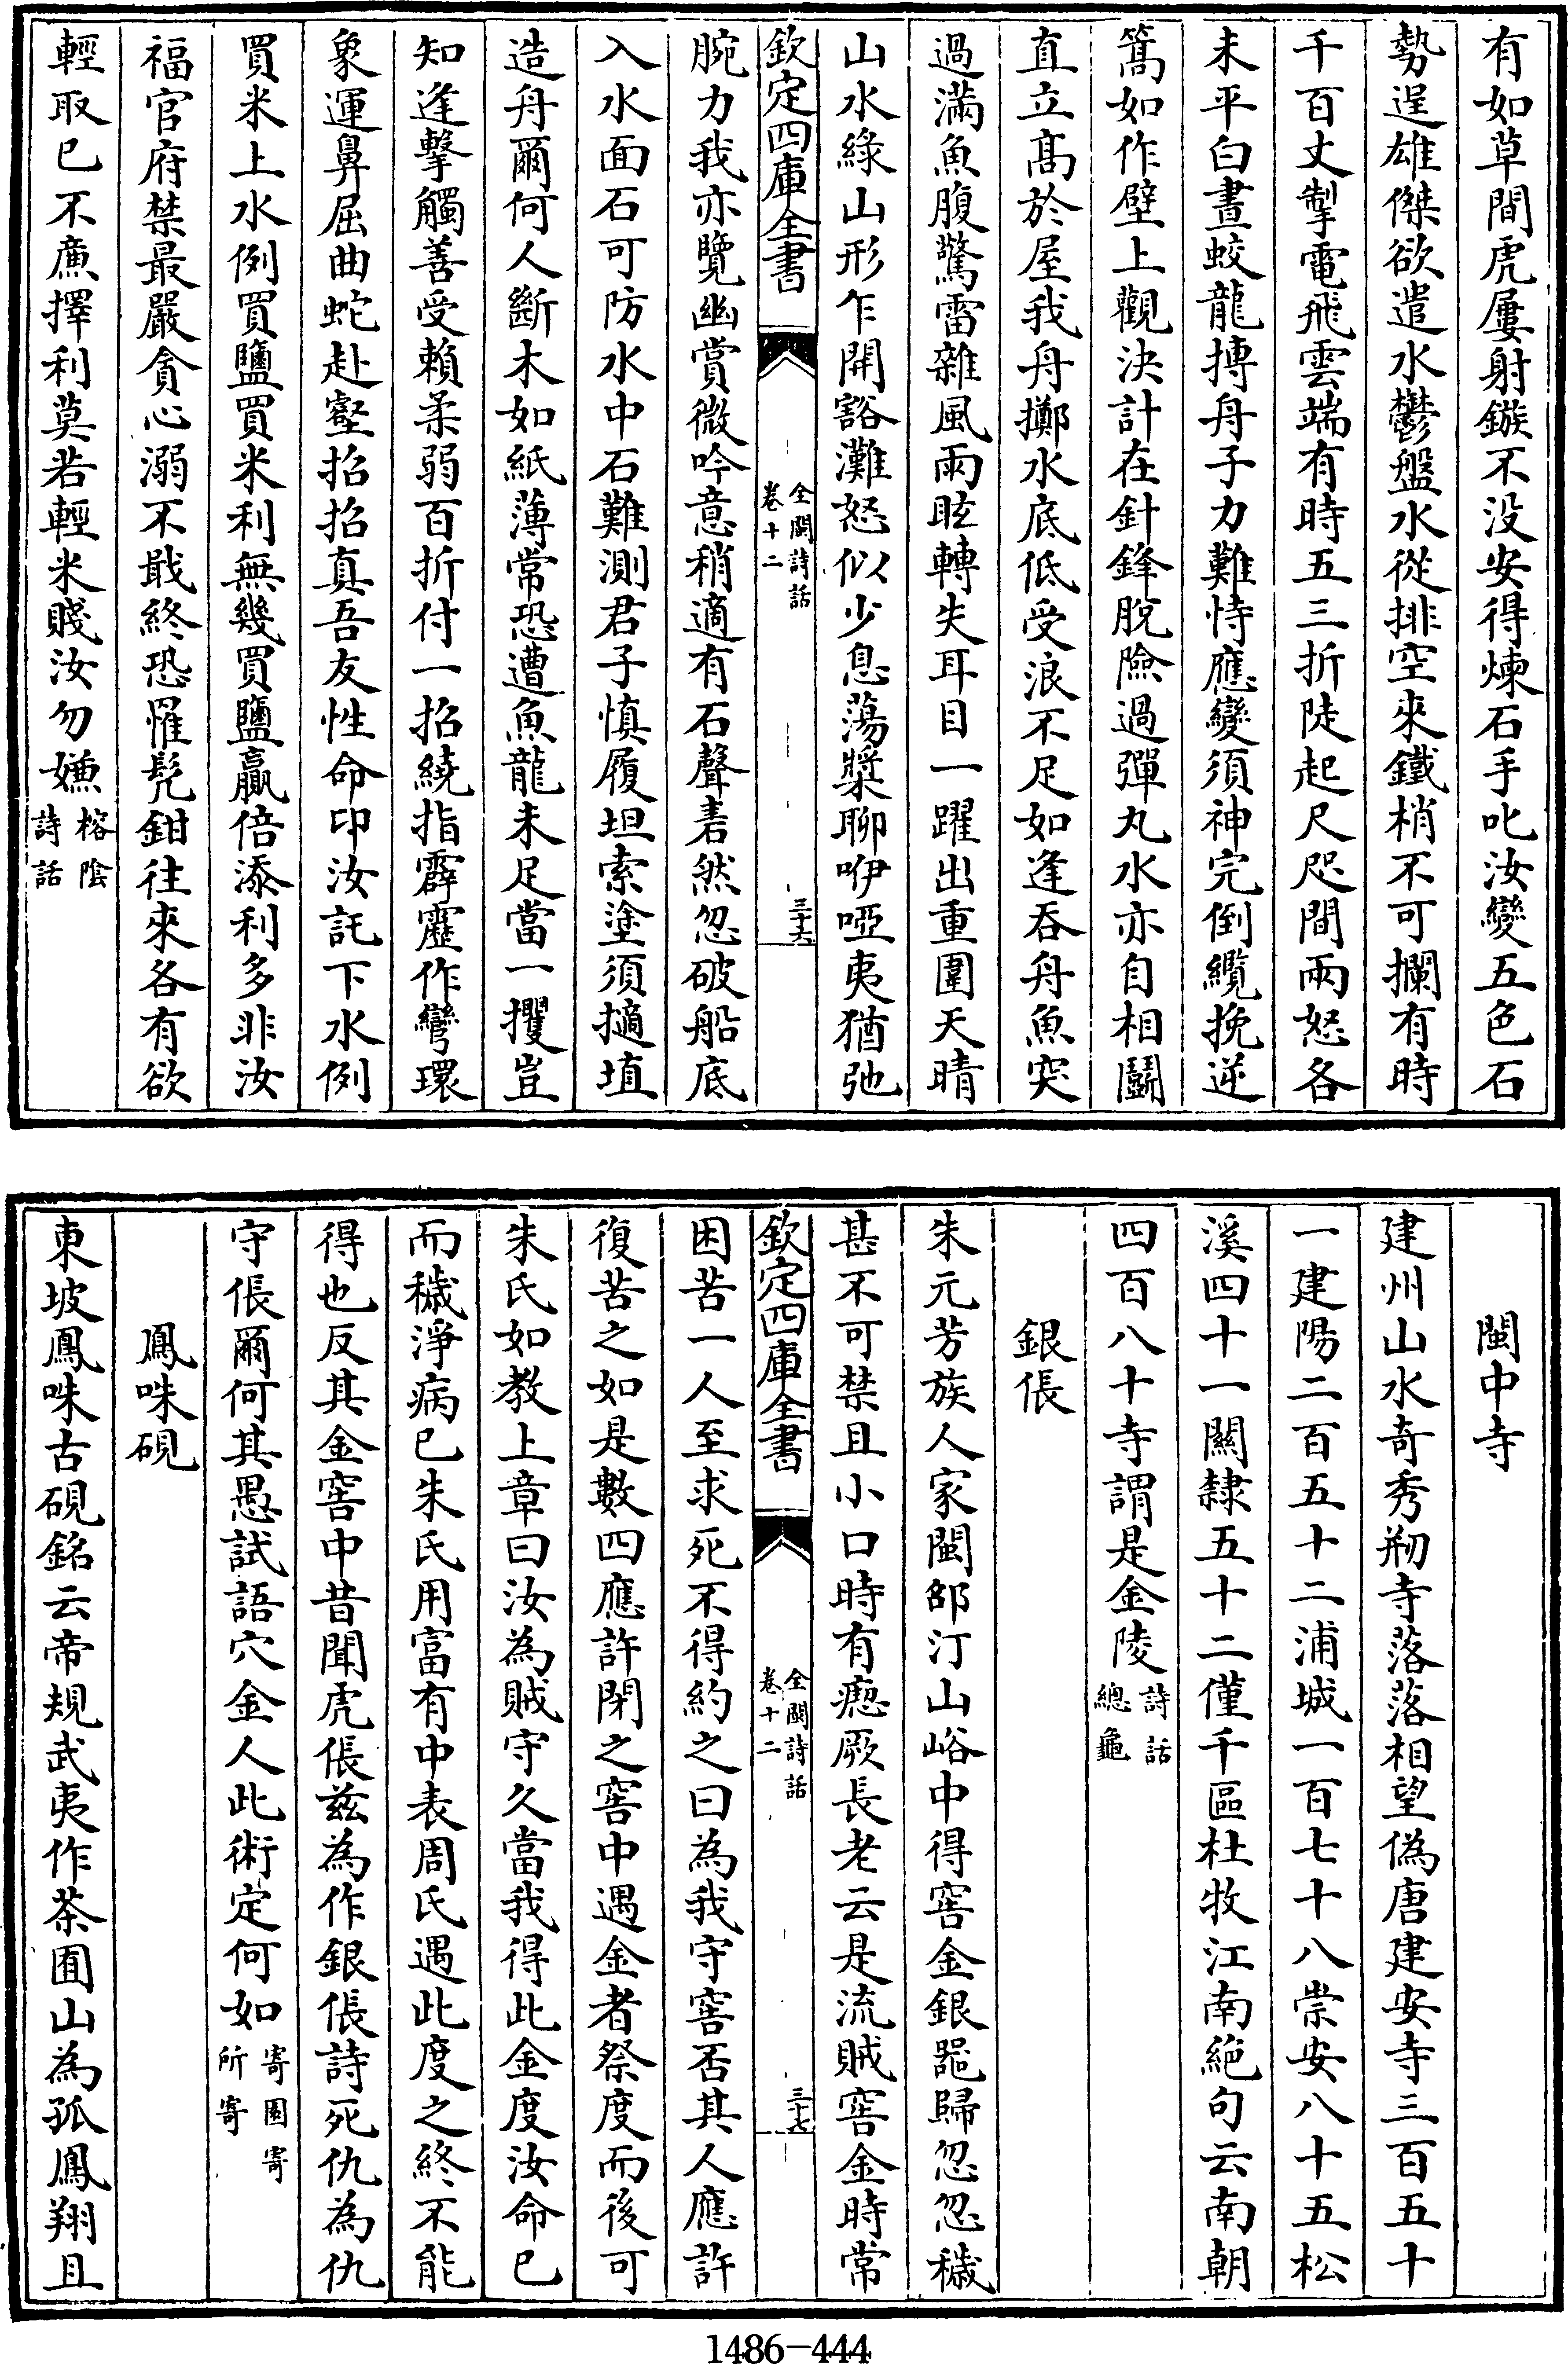 有如草間虎屢射鏃不没安得煉石手叱汝變五色石
勢逞雄傑欲遣水鬱盤水從排空來鐵梢不可攔有時
千百丈掣電飛雲端有時五三折陡起尺咫間兩怒各
未平白晝蛟龍摶舟子力難恃應變須神完倒纜挽逆
篙如作壁上觀決計在針鋒脫險過彈丸水亦自相鬭
直立髙於屋我舟擲水底低受浪不足如逢吞舟魚突
過滿魚腹驚雷雜風雨眩轉失耳目一躍出重圍天晴
山水綠山形乍開豁灘怒似少息蕩槳聊咿啞夷猶弛
欽定四庫全書
全閩詩話
卷十二
三十六
腕力我亦覽幽賞微吟意稍適有石聲砉然忽破船底
入水面石可防水中石難測君子慎履坦索塗須擿埴
造舟爾何人斷木如紙薄常恐遭魚龍未足當一攫豈
知逢擊觸善受賴柔弱百折付一招繞指霹靂作彎環
象運鼻屈曲蛇赴壑招招真吾友性命印汝託下水例
買米上水例買鹽買米利無幾買鹽贏倍添利多非汝
福官府禁最嚴貪心溺不戢終恐罹髠鉗往來各有欲
輕取已不廉擇利莫若輕米賤汝勿嫌
榕陰
詩話
閩中寺
建州山水奇秀剏寺落落相望偽唐建安寺三百五十
一建陽二百五十二浦城一百七十八崇安八十五松
溪四十一關隸五十二僅千區杜牧江南絕句云南朝
四百八十寺謂是金陵
詩話
總龜
銀倀
朱元芳族人家閩部汀山峪中得窖金銀器歸忽忽穢
甚不可禁且小口時有瘛厥長老云是流賊窖金時常
欽定四庫全書
全閩詩話
卷十二
三十七
困苦一人至求死不得約之曰為我守窖否其人應許
復苦之如是數四應許閉之窖中遇金者祭度而後可
朱氏如教上章曰汝為賊守久當我得此金度汝命已
而穢淨病已朱氏用富有中表周氏遇此度之終不能
得也反其金窖中昔聞虎倀兹為作銀倀詩死仇為仇
守倀爾何其愚試語穴金人此術定何如
寄園寄
所寄
鳳咮硯
東坡鳳咮古硯銘云帝規武夷作茶囿山為孤鳳翔且
1486-444